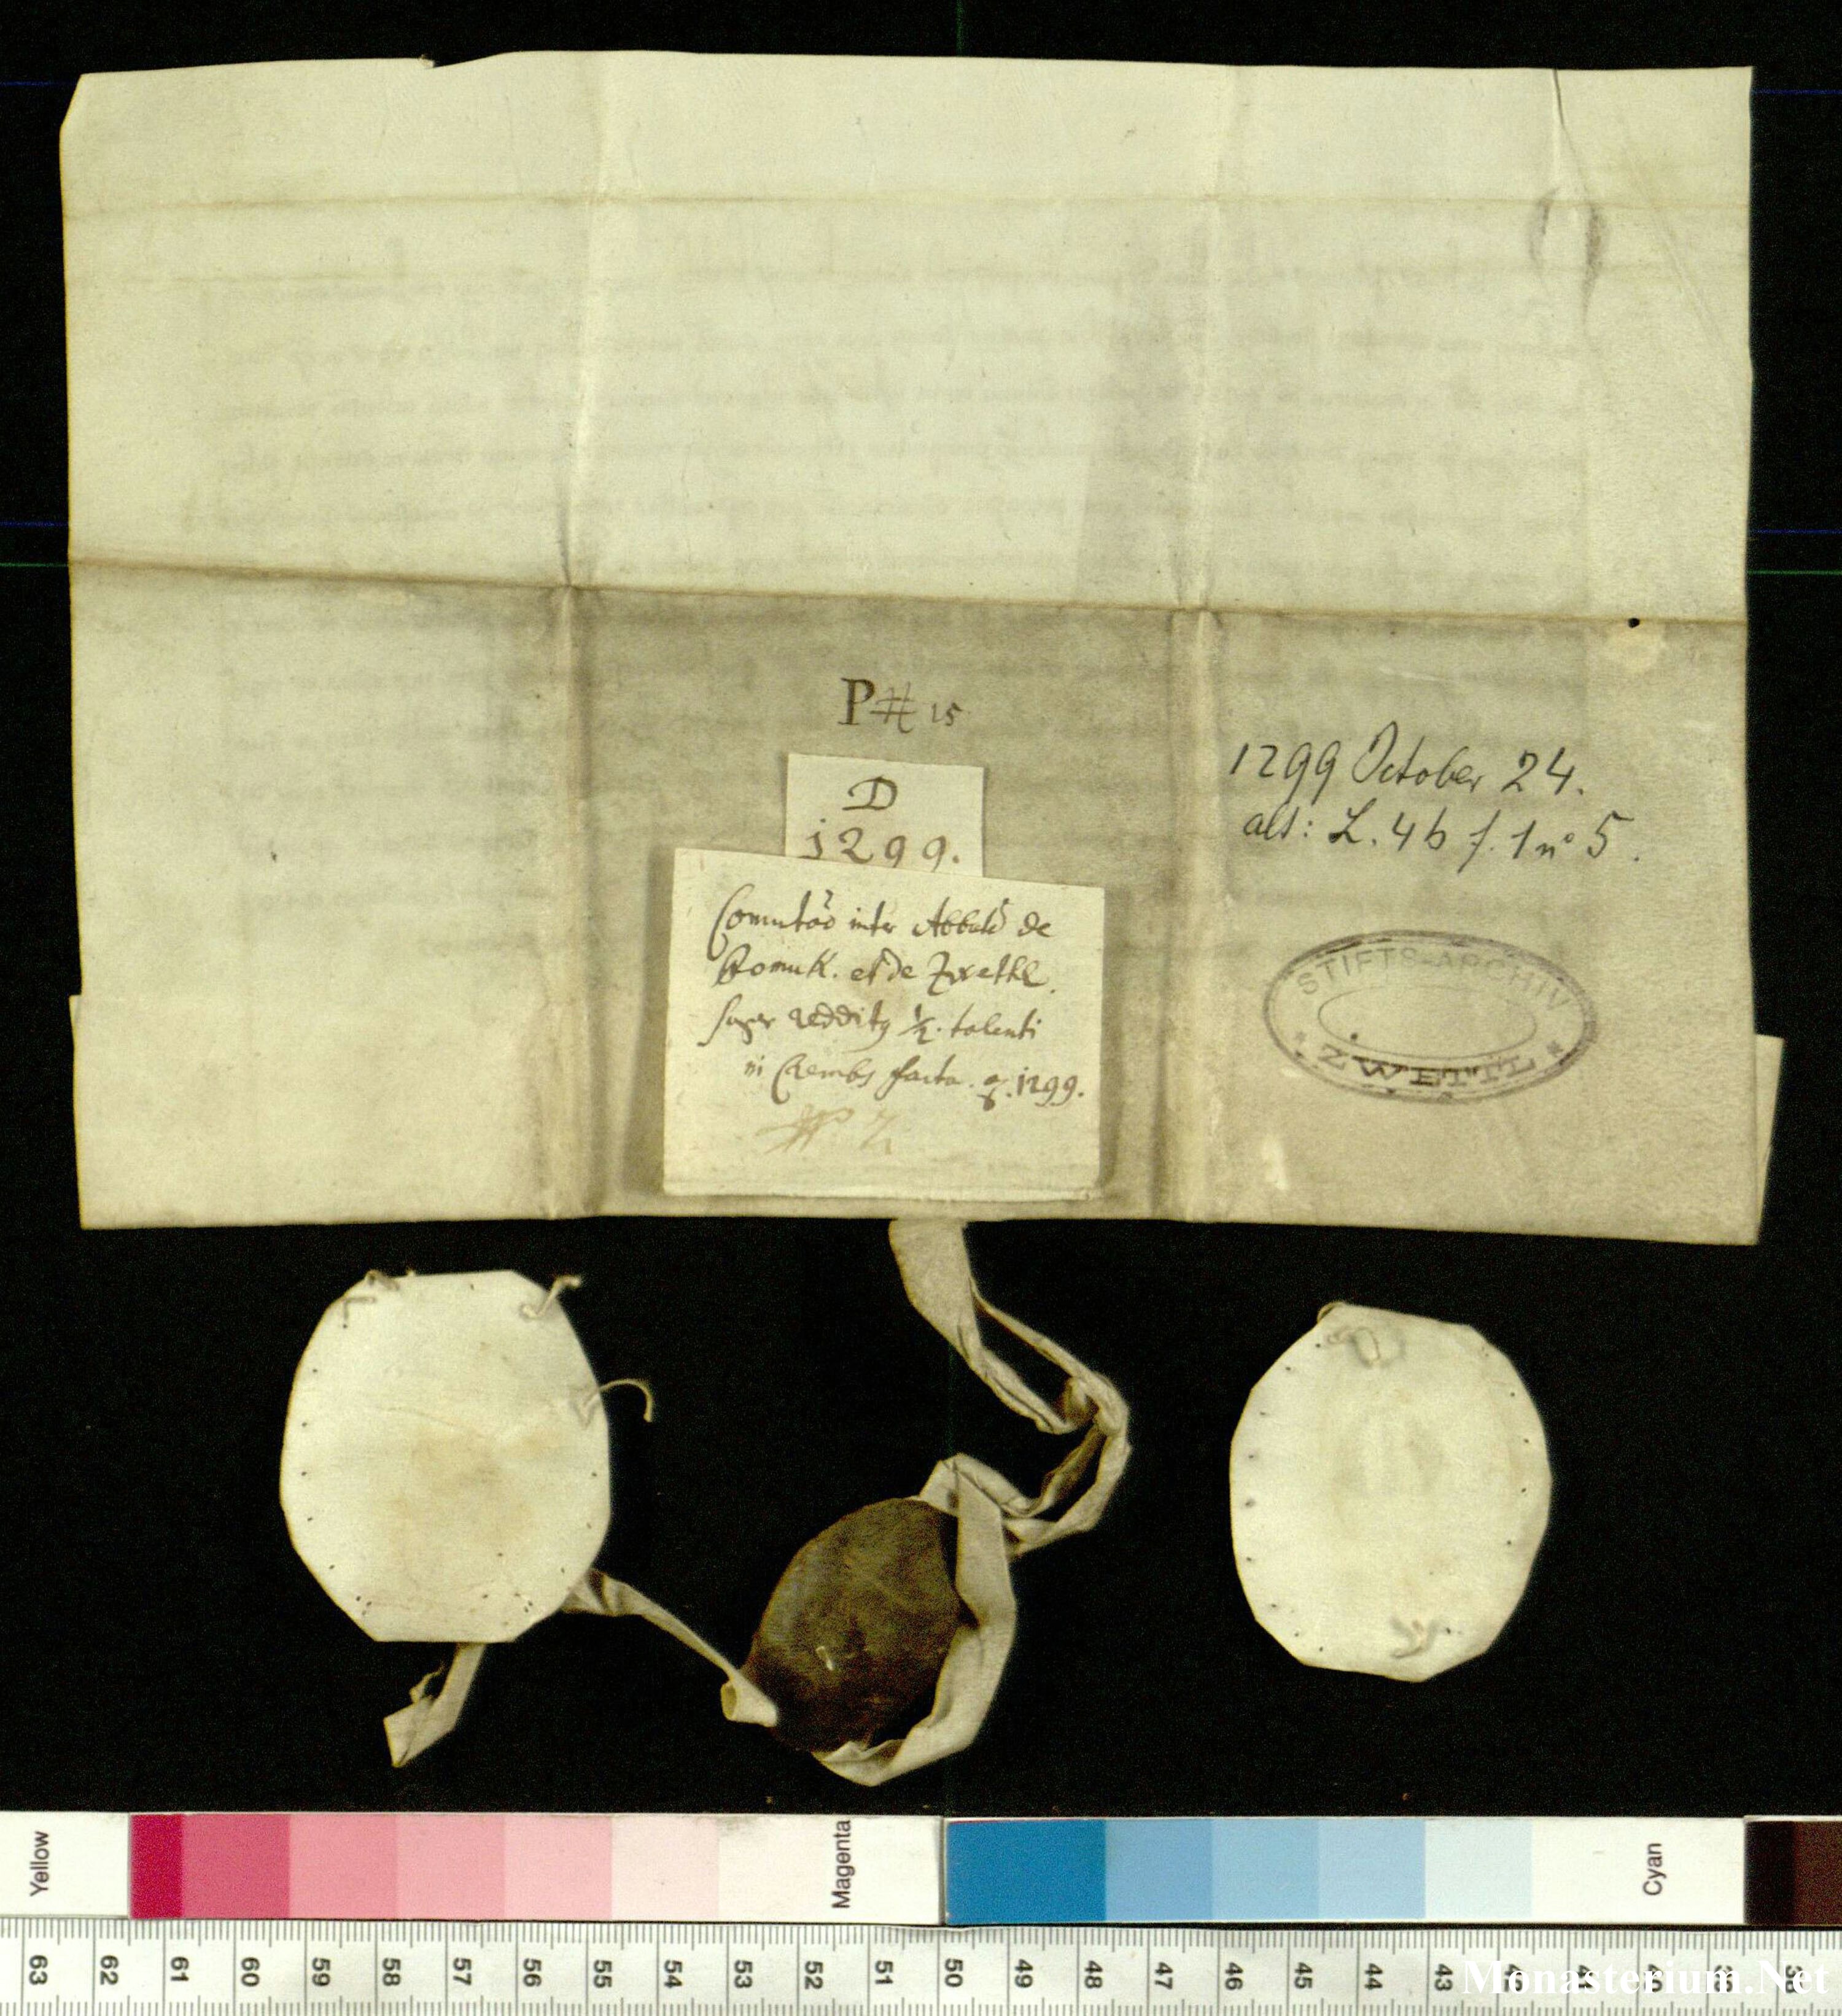 P # 15
D
1299.
Comutāo inter Abbatē de
Romuk. et de Zwethl.
super redditq ½. talenti
in Crembs facta. 1299.
1299 October 24.
alt: L. 4b f. 1 nº 5.
STIFTS-ARCHIV
* ZWETTL *
Yellow
Magenta
Cyan
63 62 61 60 59 58 57 56 55 54 53 52 51 50 49 48 47 46 45 44 43 42 41 40 39 38
Monasterium.Net